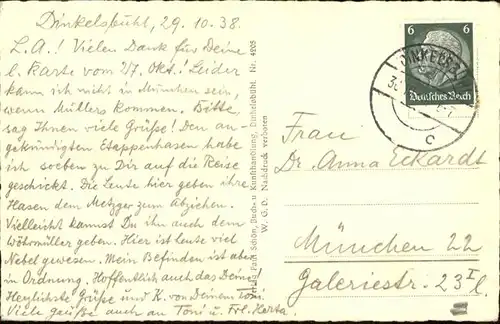 Dinkelsbühl, 29.10.38.
L.A.! Vielen Dank für Deine
l. Karte vom 27. Okt.! Leider
kann ich nicht in München sein,
wenn Müllers kommen. Bitte,
sag Ihnen viele Grüße! Den an-
gekündigten Etappenhasen habe
ich soeben zu Dir auf die Reise
geschickt. Die Leute hier geben ihre
Hasen dem Metzger zum Abziehen.
Vielleicht kannst Du ihn auch dem
Wöhrmüller geben. Hier ist heute viel
Nebel gewesen. Mein Befinden ist aber
in Ordnung. Hoffentlich auch das Deine
Herzlichste Grüße und K. von Deinem Toni
Viele Grüße auch an Toni u. Frl. Herta.
Buch- u. Kunsthandlung, Dinkelsbühl. Nr. 4205
W. G. D. Nachdruck verboten
6 6
Deutsches Reich
DINKELSB
c
Frau
Dr. Anna Eckardt
München 22
Galeriestr. 23 I l.